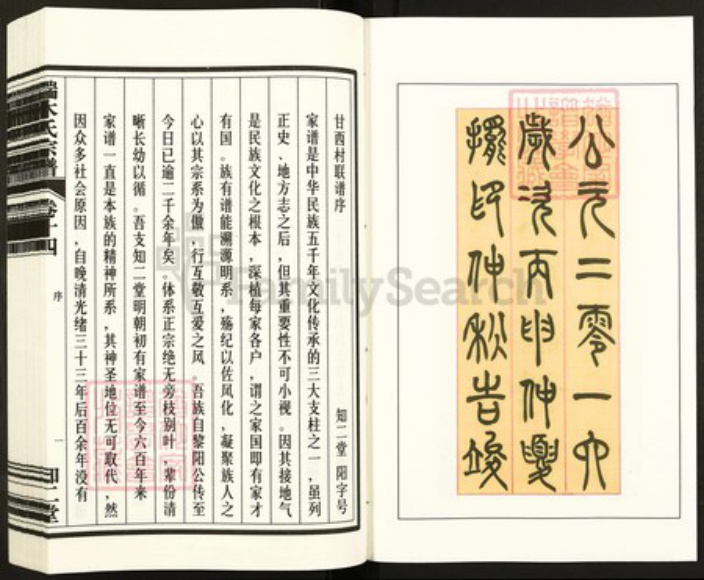 公元二零一六
歲次丙申仲夏
擺印仲秋告竣
甘西村联谱序
知二堂 阳字号
家谱是中华民族五千年文化传承的三大支柱之一，虽列
正史、地方志之后，但其重要性不可小视。因其接地气
是民族文化之根本，深植每家各户，谓之家国即有家才
有国。族有谱能溯源明系，殇纪以佐风化，凝聚族人之
心以其宗系为傲，行互敬互爱之风。吾族自黎阳公传至
今日已逾二千余年矣，体系正宗绝无旁枝别叶，辈份清
晰长幼以循。吾支知二堂明朝初有家谱至今六百年来
家谱一直是本族的精神所系，其神圣地位无可取代，然
因众多社会原因，自晚清光绪三十三年后百余年没有
端木氏宗谱
卷十四
序
一
知二堂
FamilySearch